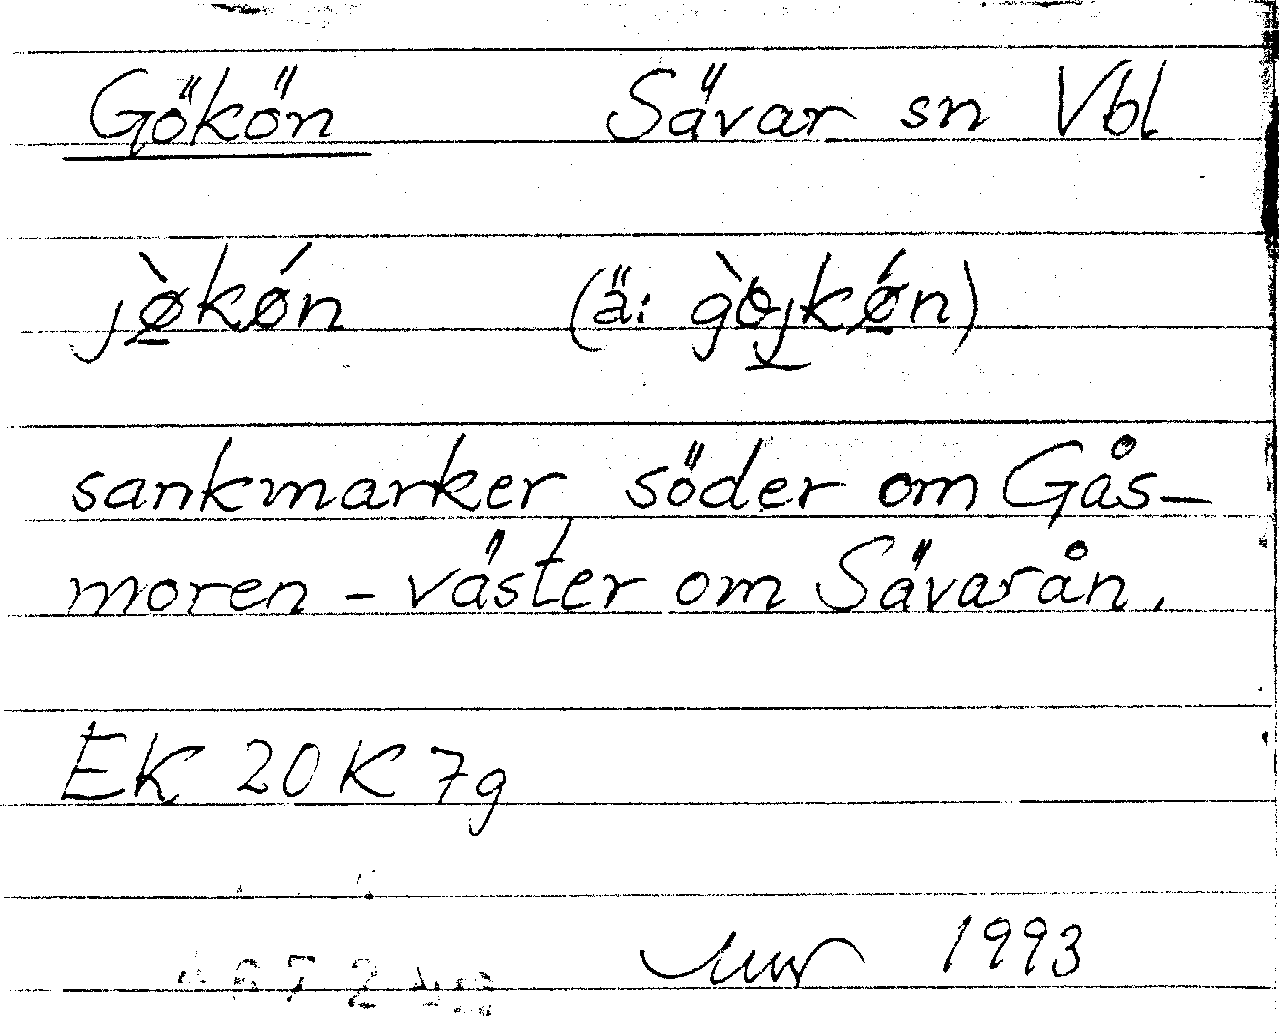 Gökön Sävar sn Vbl
jø̀kǿn (ä: gøjkøn)
sankmarker söder om Gås-
moren - väster om Sävarån.
EK 20 K 7g
1993